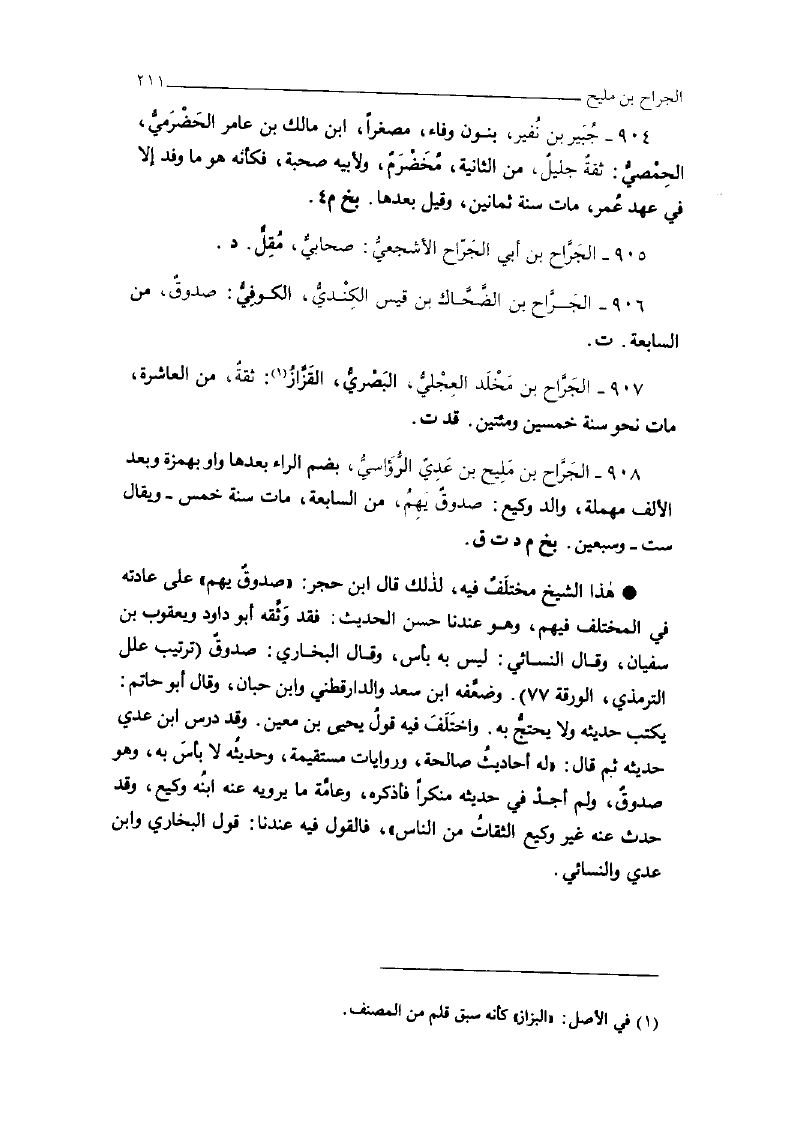 الجراح بن مليح ٢١١
٩٠٤ ـ جُبَير بن نُفير، بنون وفاء، مصغراً، ابن مالك بن عامر الحَضْرَميُّ،
الحِمْصيُّ: ثقةٌ جليلٌ، من الثانية، مُخَضْرَمٌ، ولأبيه صحبة، فكأنه هو ما وفد إلا
في عهد عُمر، مات سنة ثمانين، وقيل بعدها. بخ م٤.
٩٠٥ ـ الجَرَّاح بن أبي الجَرّاح الأشجعيُّ: صحابيٌّ، مُقِلٌّ. د.
٩٠٦ ـ الجَـرَّاح بن الضَّحَّاك بن قيس الكِنْديُّ، الكوفيُّ: صدوقٌ، من
السابعة. ت.
٩٠٧ ـ الجَرَّاح بن مَخْلَد العِجْليُّ، البَصْريُّ، القَزَّازُ(١): ثقةٌ، من العاشرة،
مات نحو سنة خمسين ومئتين. قد ت.
٩٠٨ ـ الجَرَّاح بن مَليح بن عَديّ الرُّؤاسيُّ، بضم الراء بعدها واو بهمزة وبعد
الألف مهملة، والد وكيع: صدوقٌ يَهِمُ، من السابعة، مات سنة خمس ـ ويقال
ست ـ وسبعين. بخ م د ت ق.
● هٰذا الشيخ مختلَفٌ فيه، لذٰلك قال ابن حجر: «صدوقٌ يهم» على عادته
في المختلف فيهم، وهـو عندنا حسن الحديث: فقد وَثَّقه أبو داود ويعقوب بن
سفيان، وقال النسائي: ليس به بأس، وقال البخاري: صدوقٌ (ترتيب علل
الترمذي، الورقة ٧٧). وضعَّفه ابن سعد والدارقطني وابن حبان، وقال أبو حاتم:
يكتب حديثه ولا يحتجُّ به. واختَلَفَ فيه قولُ يحيى بن معين. وقد درس ابن عدي
حديثه ثم قال: «له أحاديثُ صالحة، وروايات مستقيمة، وحديثُه لا بأسَ به، وهو
صدوقٌ، ولم أجدْ في حديثه منكراً فأذكره، وعامَّة ما يرويه عنه ابنُه وكيع، وقد
حدث عنه غير وكيع الثقاتُ من الناس»، فالقول فيه عندنا: قول البخاري وابن
عدي والنسائي.
(١) في الأصل: «البزاز» كأنه سبق قلم من المصنف.